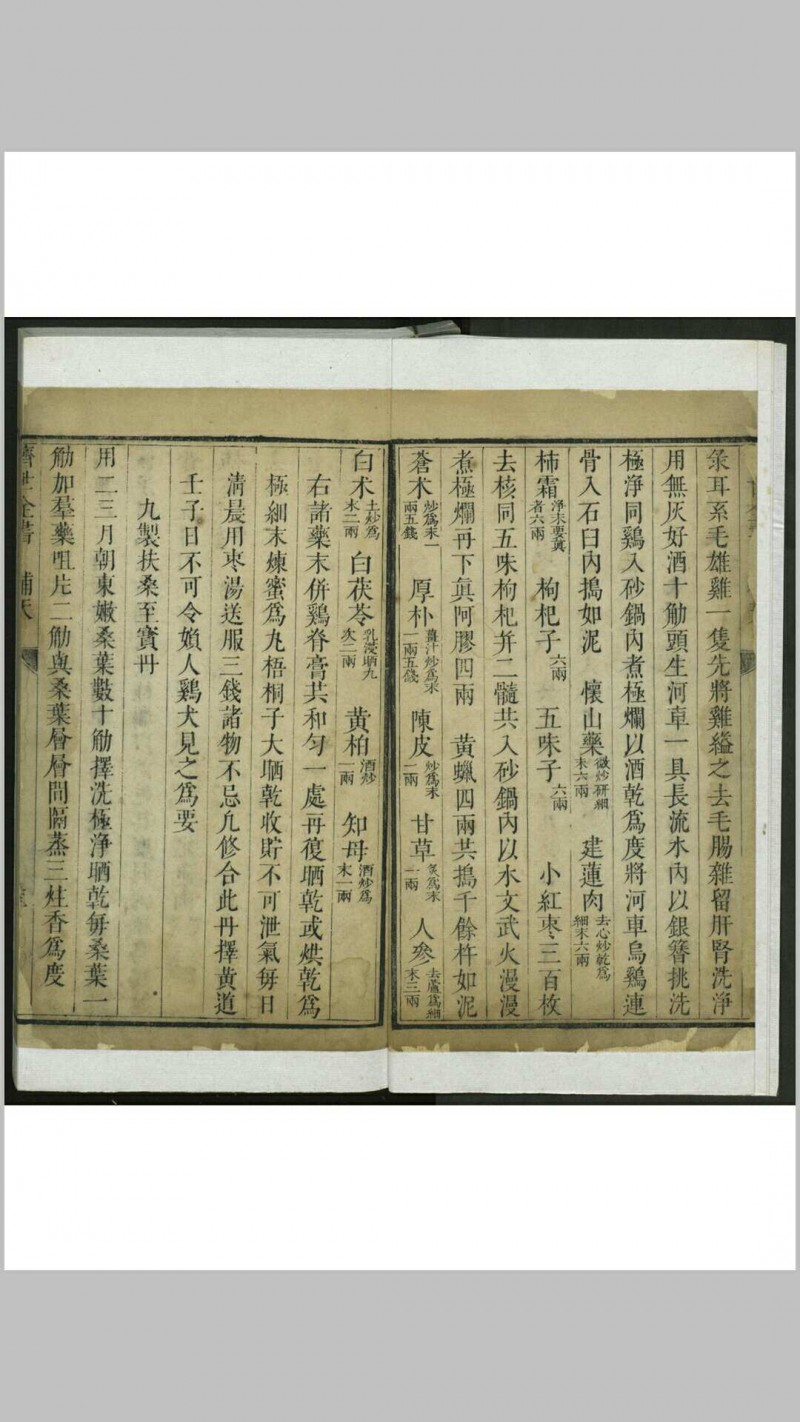 彔耳系毛雄雞一隻先將雞縊之去毛腸雜留肝腎洗淨
用無灰好酒十觔頭生河車一具長流水內以銀簪挑洗
極淨同鷄入砂鍋內煮極爛以酒乾爲度將河車烏鷄連
骨入石臼內搗如泥 懷山藥微炒研細末六兩 建蓮肉去心炒乾爲細末六兩
柿霜淨末要真者六兩 枸杞子六兩 五味子六兩 小紅棗三百枚
去核同五味枸杞并二髓共入砂鍋內以水文武火漫漫
煮極爛再下眞阿膠四兩 黃蠟四兩共搗千餘杵如泥
蒼朮炒爲末一兩五錢 厚朴薑汁炒爲末一兩五錢 陳皮炒爲末一兩 甘草炙爲末一兩 人參去蘆爲細末三兩
白朮土炒爲末二兩 白茯苓乳浸晒九次二兩 黃柏酒炒一兩 知母酒炒爲末一兩
右諸藥末併鷄脊膏共和勻一處再復晒乾或烘乾爲
極細末煉蜜爲丸梧桐子大晒乾收貯不可泄氣每日
清晨用棗湯送服三錢諸物不忌凡修合此丹擇黃道
壬子日不可令婦人鷄犬見之爲要
九製扶桑至寶丹
用二三月朝東嫩桑葉數十觔擇洗極净晒乾每桑葉一
觔加羣藥咀片二觔與桑葉層層間隔蒸三炷香爲度
濟世全書 補天